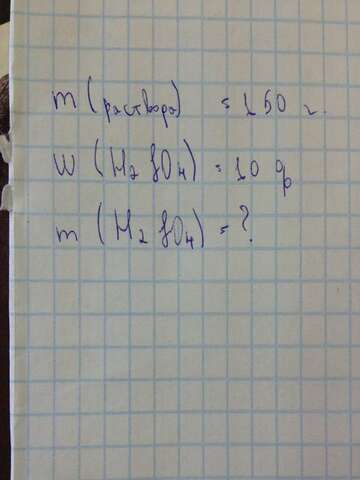 m (раствора) = 150 г.
W (H₂SO₄) = 10 %
m (H₂SO₄) = ?